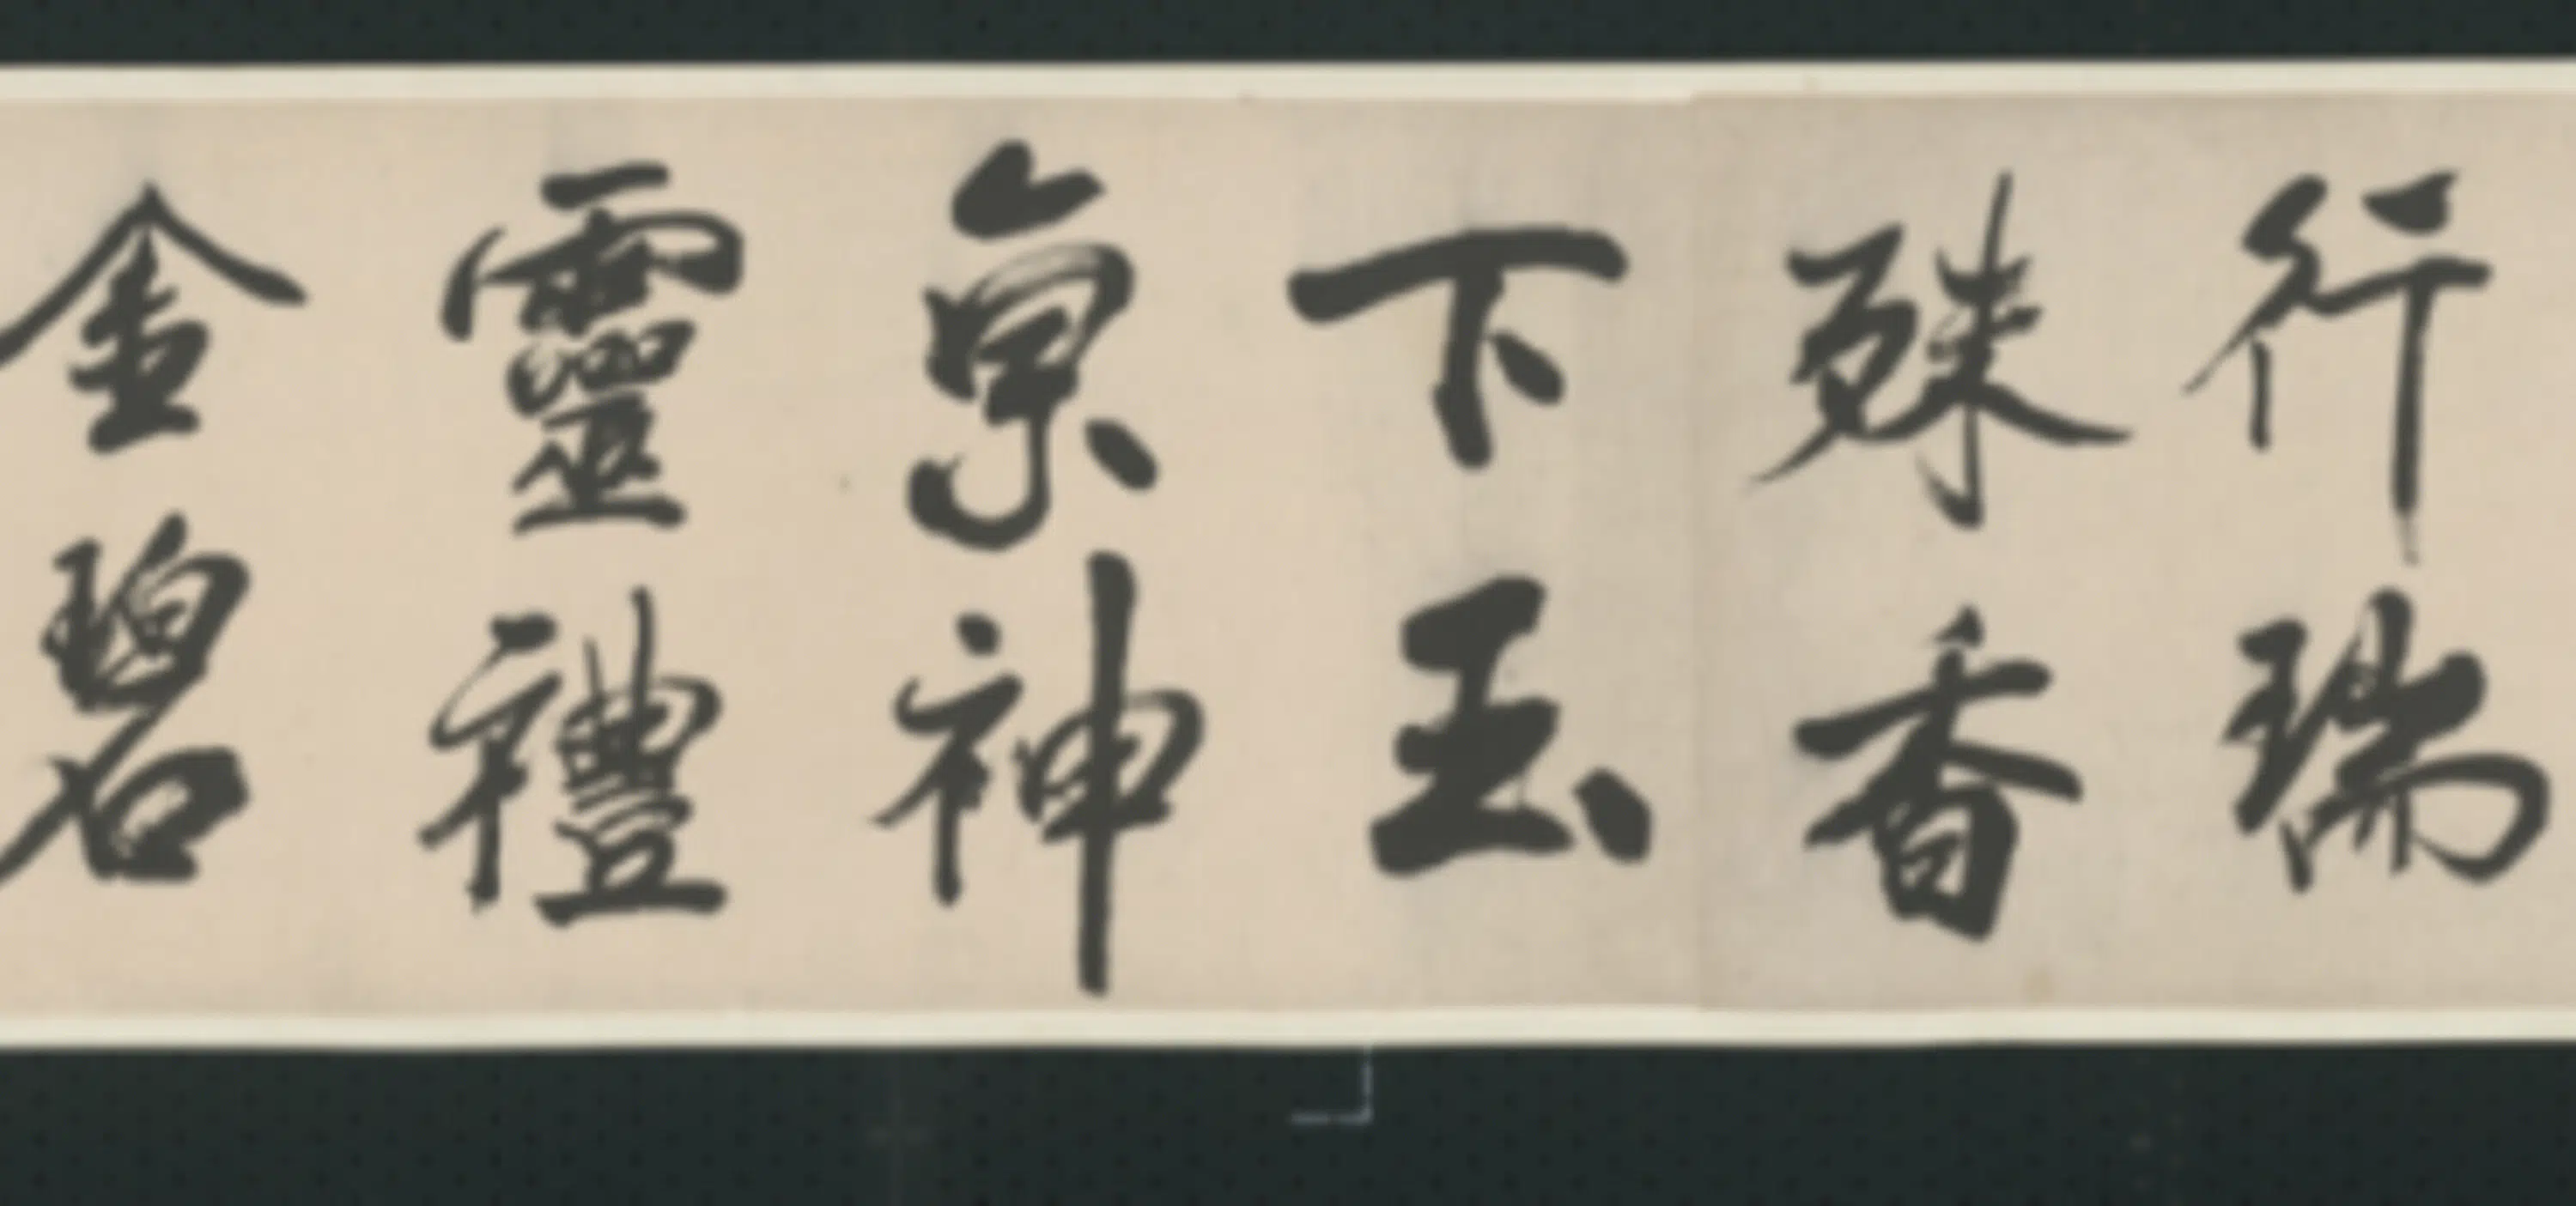 行瑞
殊香
下玉
京神
靈禮
金碧